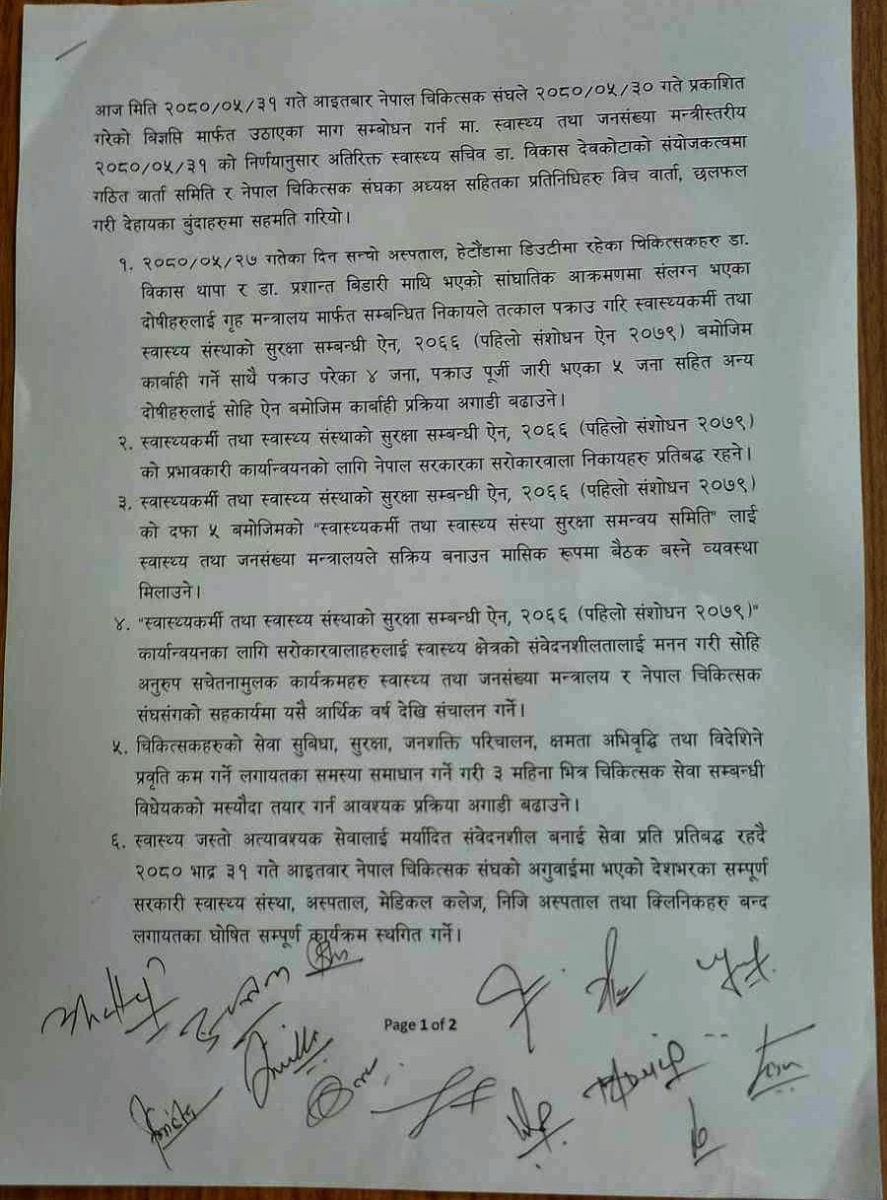 आज मिति २०८०/०५/३१ गते आइतबार नेपाल चिकित्सक संघले २०८०/०५/३० गते प्रकाशित
गरेको बिज्ञप्ति मार्फत उठाएका माग सम्बोधन गर्न मा. स्वास्थ्य तथा जनसंख्या मन्त्रीस्तरीय
२०८०/०५/३१ को निर्णयानुसार अतिरिक्त स्वास्थ्य सचिव डा. विकास देवकोटाको संयोजकत्वमा
गठित वार्ता समिति र नेपाल चिकित्सक संघका अध्यक्ष सहितका प्रतिनिधिहरु विच वार्ता, छलफल
गरी देहायका बुंदाहरुमा सहमति गरियो।
१. २०८०/०५/२७ गतेका दिन सन्चो अस्पताल, हेटौंडामा डिउटीमा रहेका चिकित्सकहरु डा.
विकास थापा र डा. प्रशान्त बिडारी माथि भएको सांघातिक आक्रमणमा संलग्न भएका
दोषीहरुलाई गृह मन्त्रालय मार्फत सम्बन्धित निकायले तत्काल पक्राउ गरि स्वास्थ्यकर्मी तथा
स्वास्थ्य संस्थाको सुरक्षा सम्बन्धी ऐन, २०६६ (पहिलो संशोधन ऐन २०७९) बमोजिम
कार्बाही गर्ने साथै पक्राउ परेका ४ जना, पक्राउ पूर्जी जारी भएका ५ जना सहित अन्य
दोषीहरुलाई सोहि ऐन बमोजिम कार्बाही प्रक्रिया अगाडी बढाउने।
२. स्वास्थ्यकर्मी तथा स्वास्थ्य संस्थाको सुरक्षा सम्बन्धी ऐन, २०६६ (पहिलो संशोधन २०७९)
को प्रभावकारी कार्यान्वयनको लागि नेपाल सरकारका सरोकारवाला निकायहरु प्रतिबद्ध रहने।
३. स्वास्थ्यकर्मी तथा स्वास्थ्य संस्थाको सुरक्षा सम्बन्धी ऐन, २०६६ (पहिलो संशोधन २०७९)
को दफा ५ बमोजिमको "स्वास्थ्यकर्मी तथा स्वास्थ्य संस्था सुरक्षा समन्वय समिति" लाई
स्वास्थ्य तथा जनसंख्या मन्त्रालयले सक्रिय बनाउन मासिक रूपमा बैठक बस्ने व्यवस्था
मिलाउने।
४. "स्वास्थ्यकर्मी तथा स्वास्थ्य संस्थाको सुरक्षा सम्बन्धी ऐन, २०६६ (पहिलो संशोधन २०७९)"
कार्यान्वयनका लागि सरोकारवालाहरुलाई स्वास्थ्य क्षेत्रको संवेदनशीलतालाई मनन गरी सोहि
अनुरुप सचेतनामुलक कार्यक्रमहरु स्वास्थ्य तथा जनसंख्या मन्त्रालय र नेपाल चिकित्सक
संघसंगको सहकार्यमा यसै आर्थिक वर्ष देखि संचालन गर्ने।
५. चिकित्सकहरुको सेवा सुबिधा, सुरक्षा, जनशक्ति परिचालन, क्षमता अभिवृद्धि तथा विदेशिने
प्रवृति कम गर्ने लगायतका समस्या समाधान गर्ने गरी ३ महिना भित्र चिकित्सक सेवा सम्बन्धी
विधेयकको मस्यौदा तयार गर्न आवश्यक प्रक्रिया अगाडी बढाउने।
६. स्वास्थ्य जस्तो अत्यावश्यक सेवालाई मर्यादित संवेदनशील बनाई सेवा प्रति प्रतिबद्ध रहदै
२०८० भाद्र ३१ गते आइतवार नेपाल चिकित्सक संघको अगुवाईमा भएको देशभरका सम्पूर्ण
सरकारी स्वास्थ्य संस्था, अस्पताल, मेडिकल कलेज, निजि अस्पताल तथा क्लिनिकहरु बन्द
लगायतका घोषित सम्पूर्ण कार्यक्रम स्थगित गर्ने।
Page 1 of 2